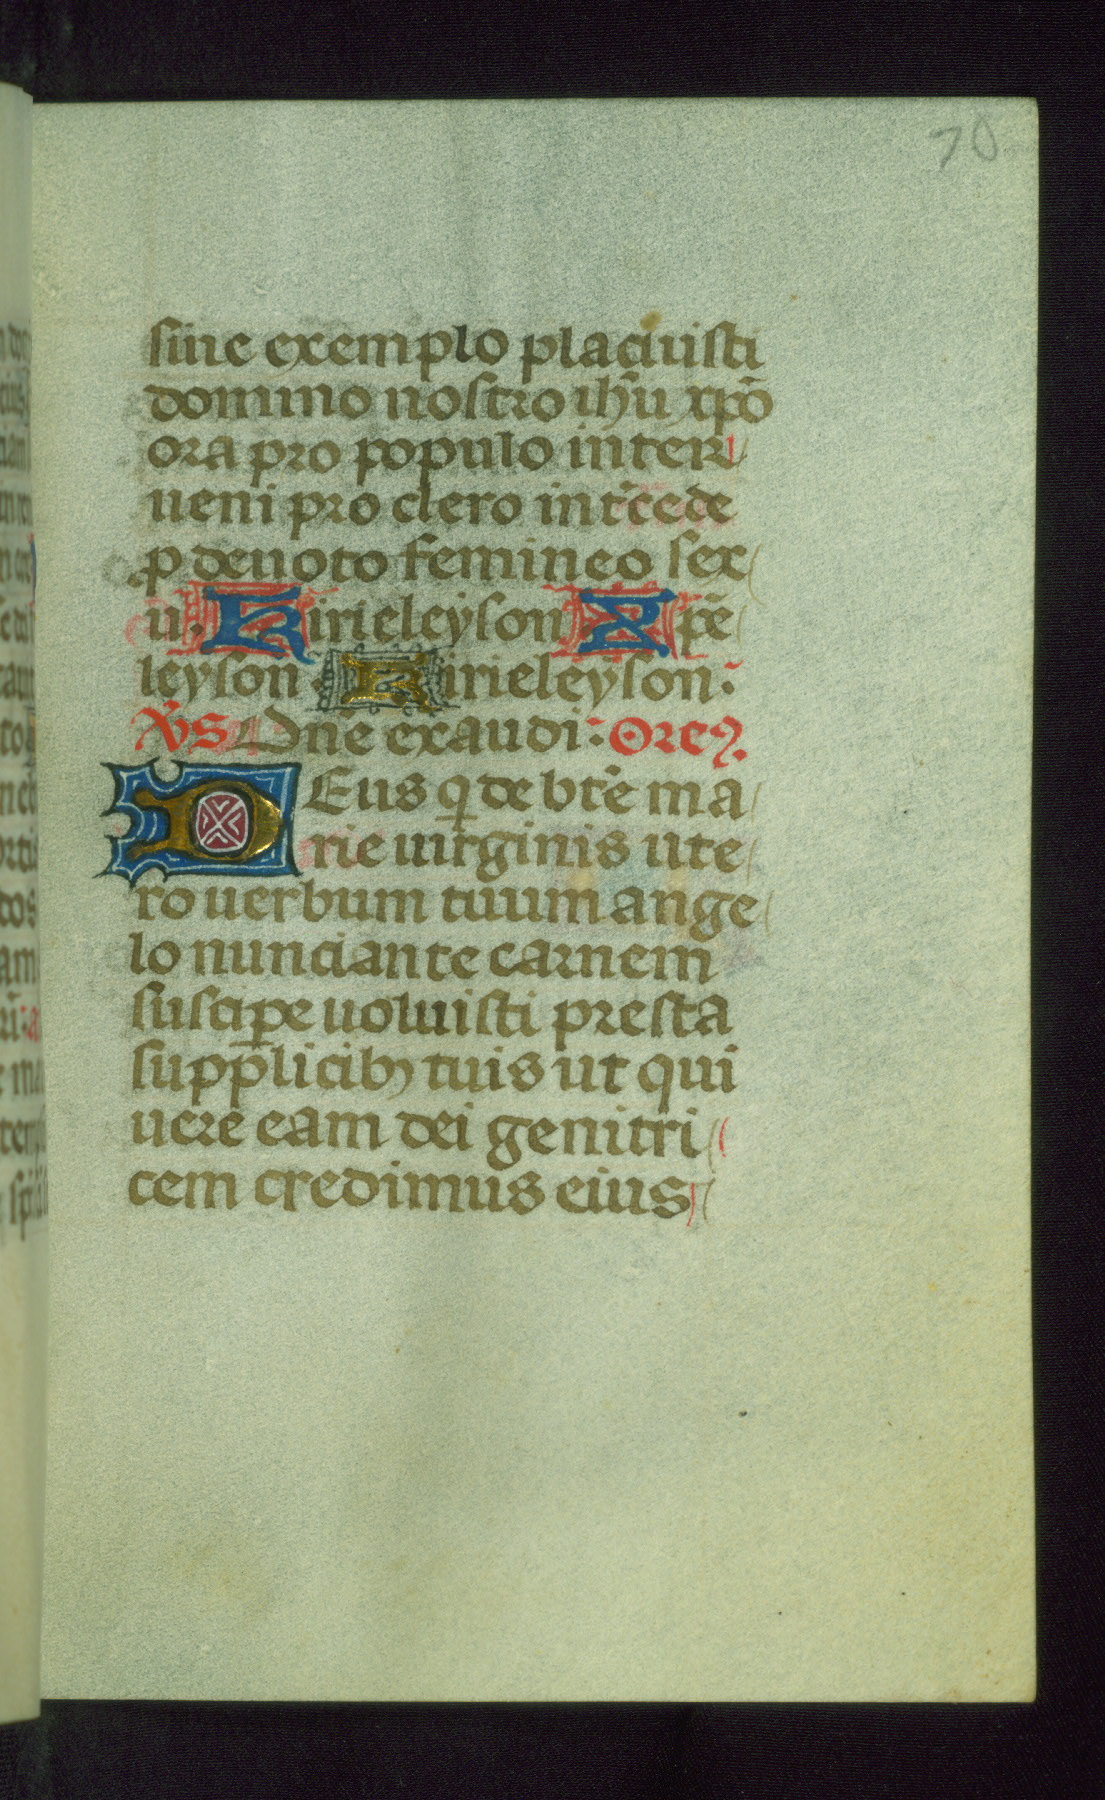 70
sine exemplo placuisti
domino nostro ihu̅ xpō
ora pro populo inter
ueni pro clero intēcede
p deuoto femineo sex
u. Kirieleyson Xpē
leyson Kirieleyson:
Vs Dne̅ exaudi: Orē
DEus q̇ de btē ma
rie uirginis ute
ro uerbum tuum ange
lo nunciante carnem
suscipe uoluisti presta
supplicibꝫ tuis ut qui
uere eam dei genitri
cem credimus eius